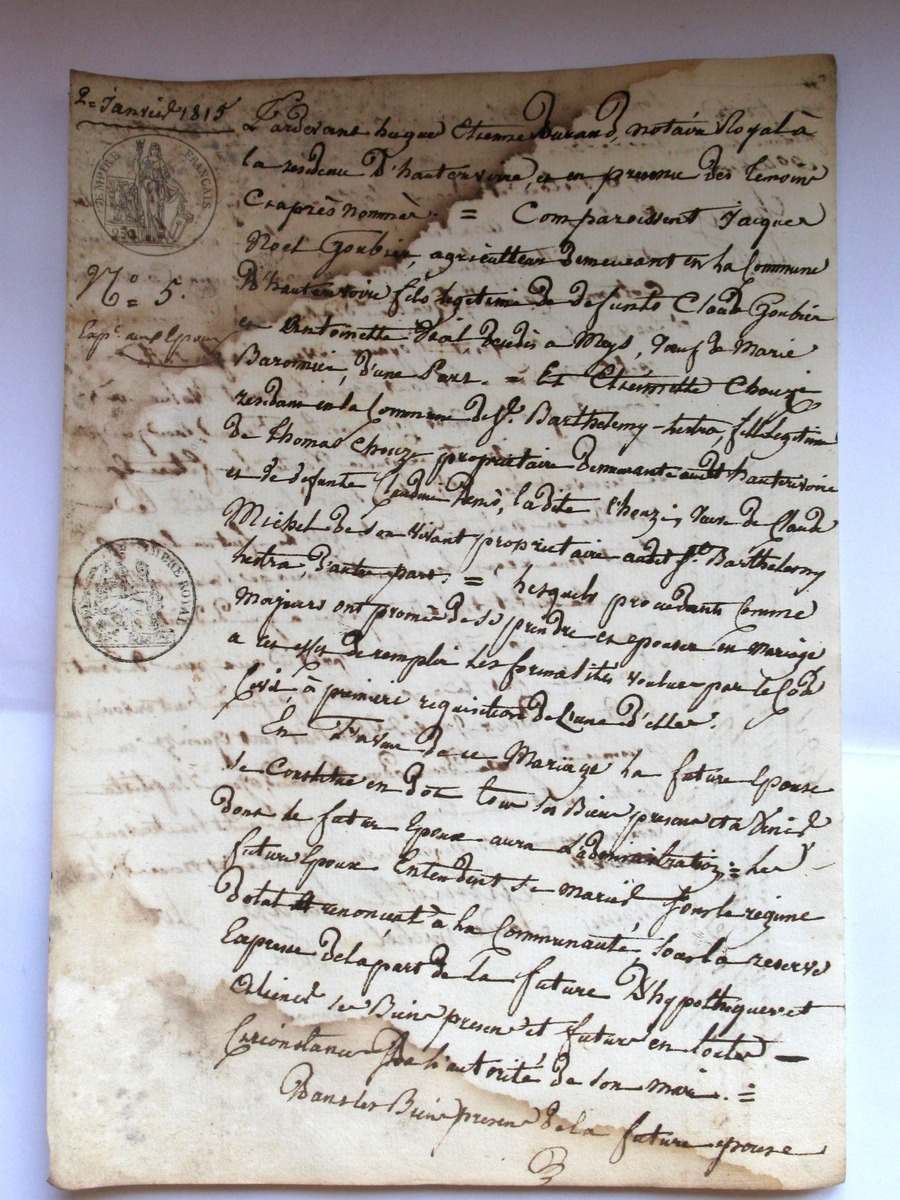 2= Janvier 1815
Pardevant hugue Etienne Durand, notaire Royal à
EMPIRE FRANÇAIS
la residence D'hauterivoire, et en presence des temoins
Ciaprès nommés. = Comparoissent Jacques
Noel Goubier, agriculteur demeurant en la Commune
N° = 5.
D'hauterivoire fils legitime de defunts Claude Goubier
et Antoinette Véal, de Meys, veuf de Marie
Baronnier, d'une Part. = Et Etiennette Chouzi
residante en la Commune de St. Barthelemy-lestra, fille legitime
de Thomas Chouze proprietaire demeurant audit hauterivoire
et de defunte Claudine, ladite Chouzi, veuve de Claude
Michel de son vivant proprietaire audit St. Barthelemy
lestra, D'autre part. = Lesquels procedants comme
ROYAL
Majeurs ont promis de se prendre et epouser en Mariage
a cet effet de remplir les formalités voulues par le Code
Civil, à premiere requisition de L'une d'elles.
En Faveur de ce Mariage la future Epouse
se Constitue en Dot tous ses Biens presents et a Venir
dont le futur Epoux aura L'administration = Les
futurs Epoux Entendent se Marier sous le regime
Dotal renonçent à la Communauté, sous la reserve
Expresse de la part de la future D'hypothequer et
Aliener ses Biens present et futurs en toutes —
Circonstances De l'autorité de son mari. =
Dans les Biens presens de la future epouse